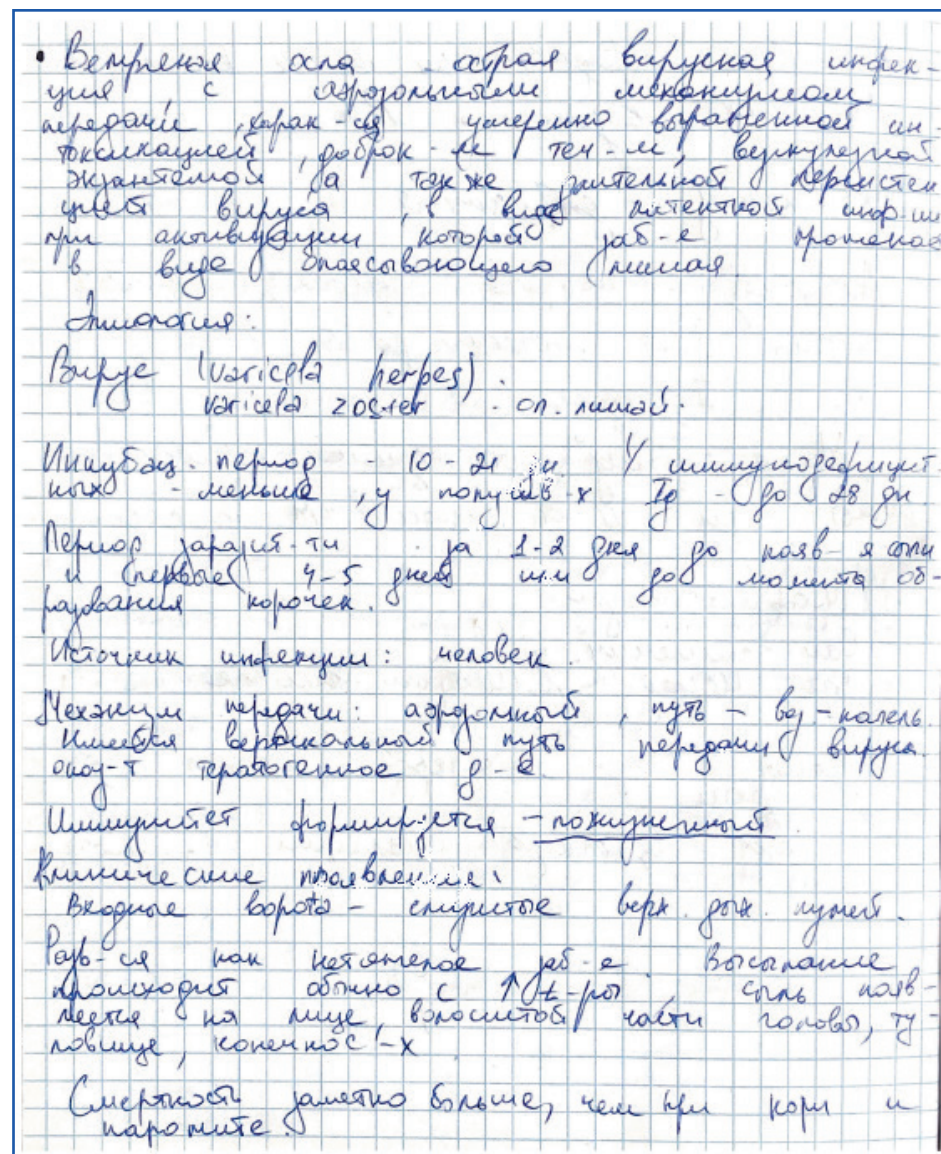 • Ветреная оспа - острая вирусная инфек-
ция, с аэрозольными механизмом
передачи, харак-ся умеренно выраженной ин-
токсикацией, доброк-м теч-м, везикулезной
экзантемой, а также длительной персистен
цией вируса, в виде латентной инф-ии
при активизации которой заб-е протекает
в виде опоясывающего лишая.
Этиология:
Вирус (varicela herpes).
varicela zoster - оп. лишай.
Инкубац. период - 10 - 21 дн У иммунодефицит-
ных - меньше, у получив-х Ig - до 28 дн
Период заразит-ти - за 1-2 дня до появ-я сыпи
и первые 4-5 дней или до момента об-
разования корочек.
Источник инфекции: человек.
Механизм передачи: аэрозольный, путь - воз-капель.
Имеется вертикальный путь передачи вируса.
оказ-т тератогенное д-е.
Иммунитет формируется - пожизненный.
Клинические проявления:
Входные ворота - слизистые верх. дых. путей.
Разв-ся как нетяжелое заб-е. Высыпание
происходит обычно с ↑ t-ры, сыпь появ-
ляется на лице, волосистой части головы, ту-
ловище, конечнос-х
Смертность заметно больше, чем при кори и
паротите.